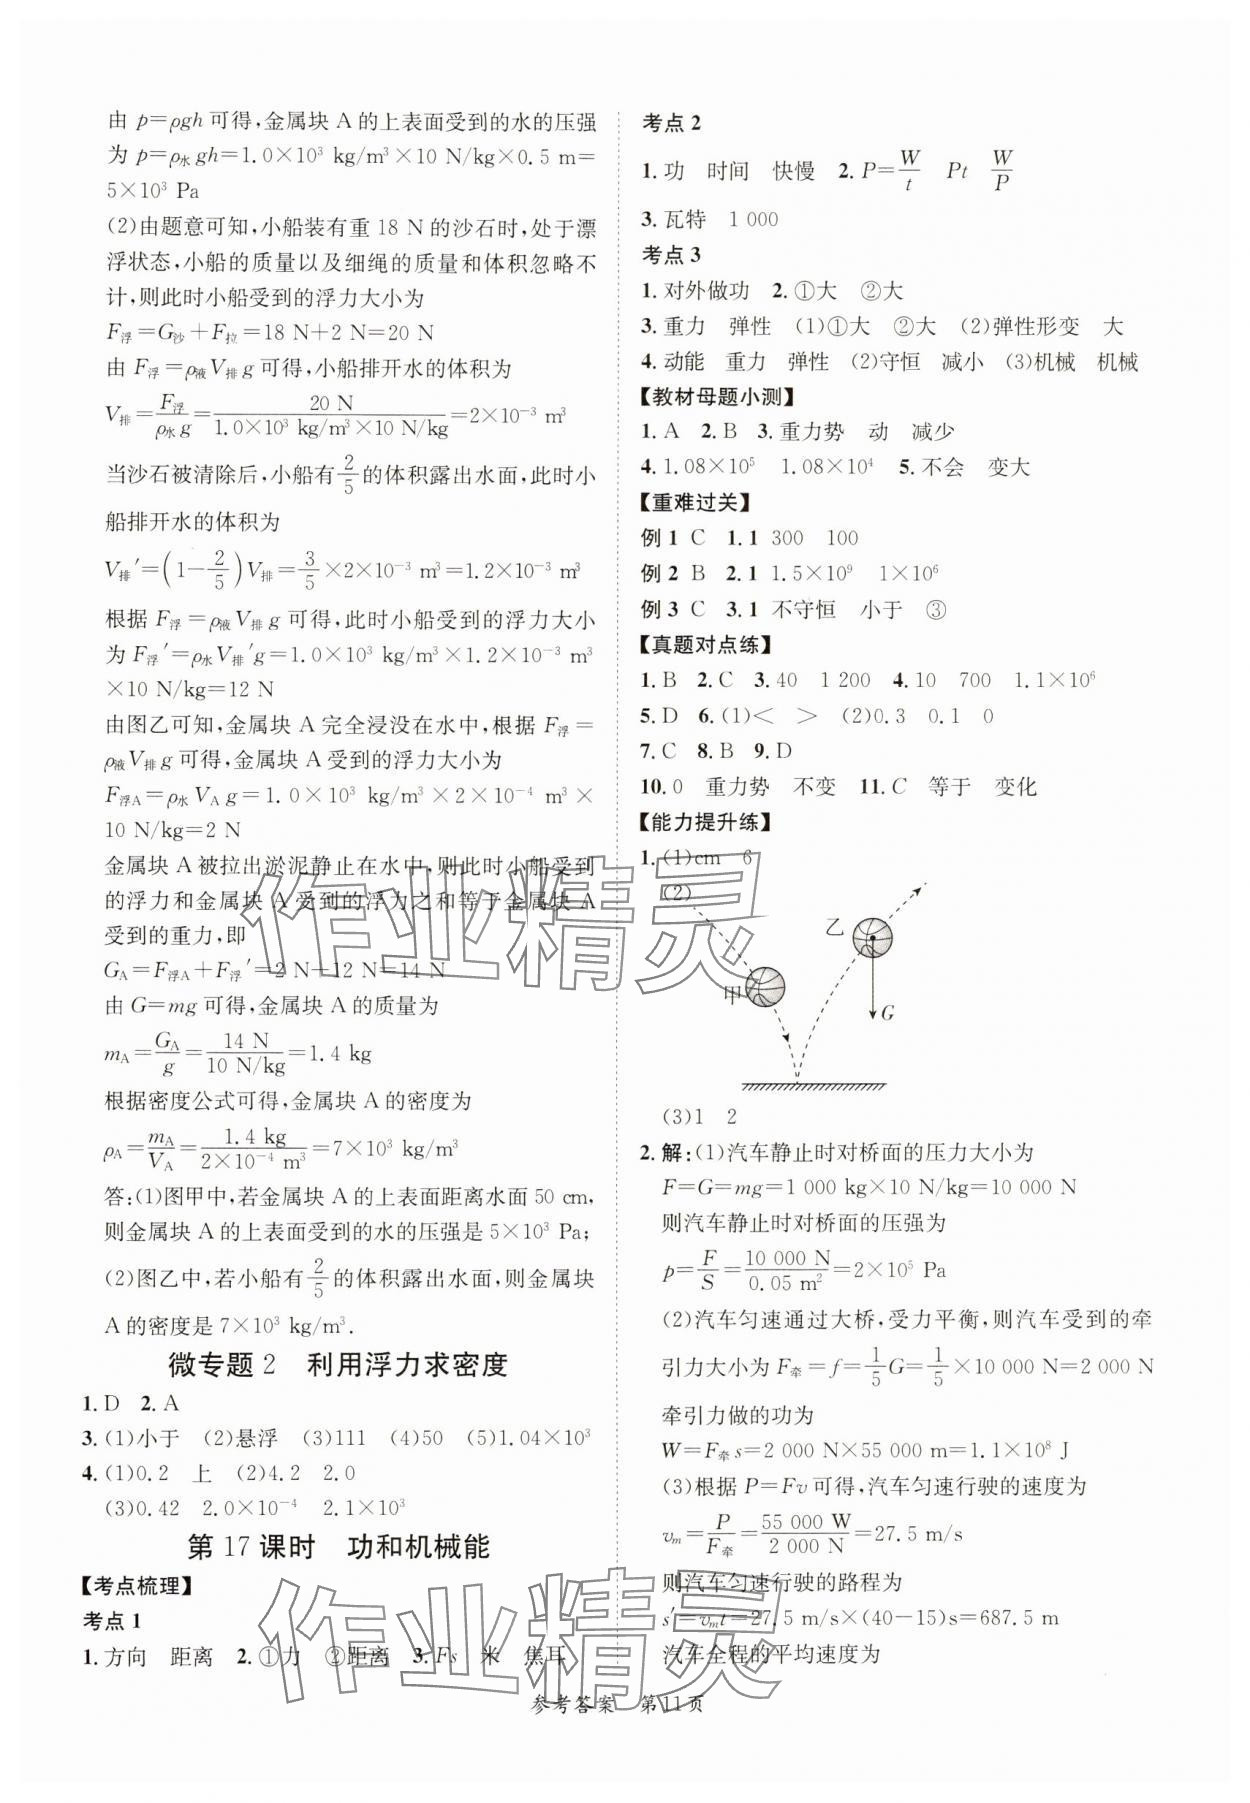 由 p=ρgh 可得,金属块 A 的上表面受到的水的压强
为 p=ρ水 gh=1.0×10³ kg/m³×10 N/kg×0.5 m=
5×10³ Pa
(2)由题意可知,小船装有重 18 N 的沙石时,处于漂
浮状态,小船的质量以及细绳的质量和体积忽略不
计,则此时小船受到的浮力大小为
F浮=G沙+F拉=18 N+2 N=20 N
由 F浮=ρ液V排g 可得,小船排开水的体积为
V排=F浮/ρ水g=20 N/1.0×10³ kg/m³×10 N/kg=2×10⁻³ m³
当沙石被清除后,小船有2/5的体积露出水面,此时小
船排开水的体积为
V排′=(1−2/5)V排=3/5×2×10⁻³ m³=1.2×10⁻³ m³
根据 F浮=ρ液V排g 可得,此时小船受到的浮力大小
为 F浮′=ρ水V排′g=1.0×10³ kg/m³×1.2×10⁻³ m³
×10 N/kg=12 N
由图乙可知,金属块 A 完全浸没在水中,根据 F浮=
ρ液V排g 可得,金属块 A 受到的浮力大小为
F浮A=ρ水VAg=1.0×10³ kg/m³×2×10⁻⁴ m³×
10 N/kg=2 N
金属块 A 被拉出淤泥静止在水中,则此时小船受到
的浮力和金属块 A 受到的浮力之和等于金属块 A
受到的重力,即
GA=F浮A+F浮′=2 N+12 N=14 N
由 G=mg 可得,金属块 A 的质量为
mA=GA/g=14 N/10 N/kg=1.4 kg
根据密度公式可得,金属块 A 的密度为
ρA=mA/VA=1.4 kg/2×10⁻⁴ m³=7×10³ kg/m³
答:(1)图甲中,若金属块 A 的上表面距离水面 50 cm,
则金属块 A 的上表面受到的水的压强是 5×10³ Pa;
(2)图乙中,若小船有2/5的体积露出水面,则金属块
A 的密度是 7×10³ kg/m³.
微专题 2 利用浮力求密度
1. D 2. A
3. (1)小于 (2)悬浮 (3)111 (4)50 (5)1.04×10³
4. (1)0.2 上 (2)4.2 2.0
(3)0.42 2.0×10⁻⁴ 2.1×10³
第 17 课时 功和机械能
【考点梳理】
考点 1
1. 方向 距离 2. ①力 ②距离 3. Fs 米 焦耳
考点 2
1. 功 时间 快慢 2. P=W/t Pt W/P
3. 瓦特 1 000
考点 3
1. 对外做功 2. ①大 ②大
3. 重力 弹性 (1)①大 ②大 (2)弹性形变 大
4. 动能 重力 弹性 (2)守恒 减小 (3)机械 机械
【教材母题小测】
1. A 2. B 3. 重力势 动 减少
4. 1.08×10⁵ 1.08×10⁴ 5. 不会 变大
【重难过关】
例 1 C 1.1 300 100
例 2 B 2.1 1.5×10⁹ 1×10⁶
例 3 C 3.1 不守恒 小于 ③
【真题对点练】
1. B 2. C 3. 40 1 200 4. 10 700 1.1×10⁶
5. D 6. (1)< > (2)0.3 0.1 0
7. C 8. B 9. D
10. 0 重力势 不变 11. C 等于 变化
【能力提升练】
1. (1)cm 6
(2)
乙
甲
G
(3)1 2
2. 解:(1)汽车静止时对桥面的压力大小为
F=G=mg=1 000 kg×10 N/kg=10 000 N
则汽车静止时对桥面的压强为
p=F/S=10 000 N/0.05 m²=2×10⁵ Pa
(2)汽车匀速通过大桥,受力平衡,则汽车受到的牵
引力大小为 F牵=f=1/5G=1/5×10 000 N=2 000 N
牵引力做的功为
W=F牵s=2 000 N×55 000 m=1.1×10⁸ J
(3)根据 P=Fv 可得,汽车匀速行驶的速度为
vm=P/F牵=55 000 W/2 000 N=27.5 m/s
则汽车匀速行驶的路程为
s′=vmt=27.5 m/s×(40−15)s=687.5 m
汽车全程的平均速度为
参考答案 第11页
作业精灵
作业精灵